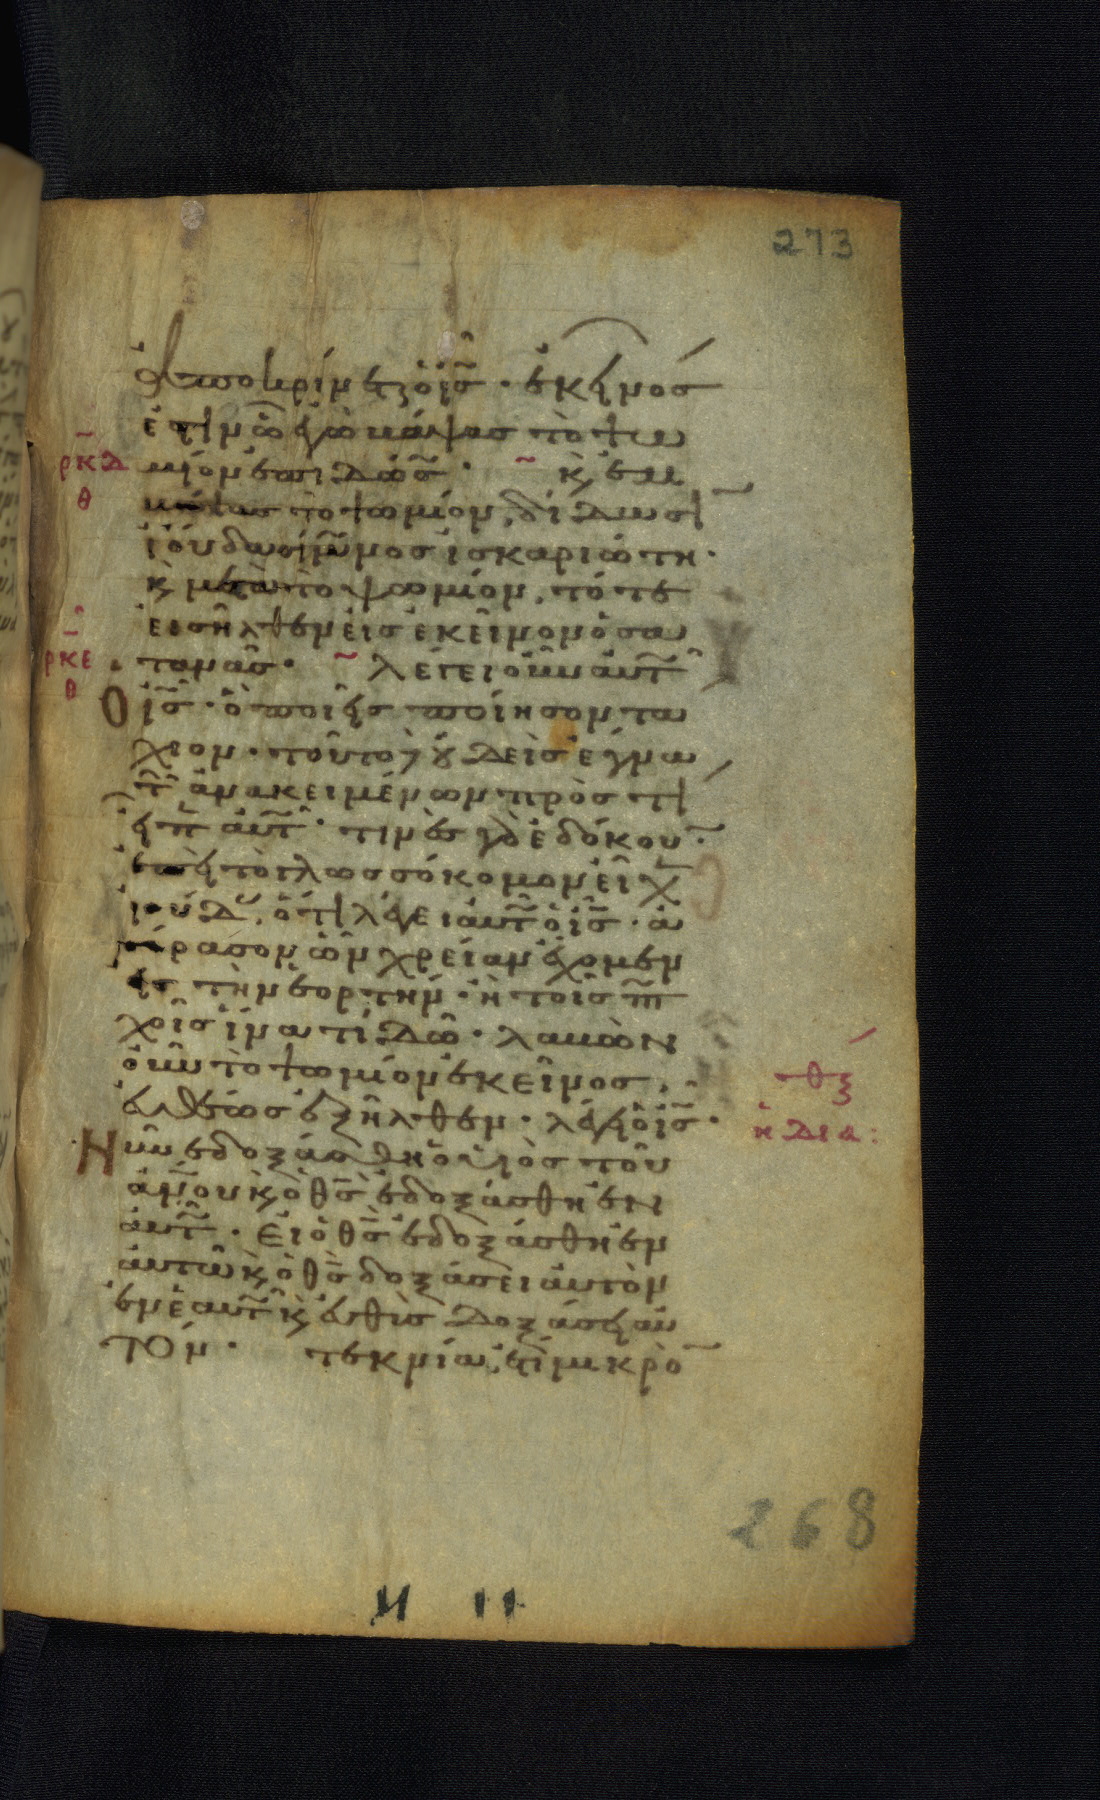 273
ἀποκρίνεται ὁ ις̅ · ἐκεῖνος
ἐστὶν ὧ ἐγὼ βάψας τὸ ψω
ρκδ θ
μίον ἐπιδώσω · ~ κ̀ ἐμ
βάψας τὸ ψωμίον, δίδωσι
ἰούδα σίμωνος ἰσκαριώτη ·
κ̀ μετὰ τὸ ψωμίον, τότε
εἰσῆλθεν εἰς ἐκεῖνον ὁ σα
ρκε θ
τανᾶς · ~ λέγει οὖν αὐτῶ
Ο ις̅ · ὃ ποιεῖς ποίησον τα
χιον · τοῦτο δὲ οὐδεὶς ἔγνω
τῶν ἀνακειμένων πρὸς τὶ
εἶπεν αὐτῶ · τινὲς γὰρ ἐδόκουν ·
ἐπεὶ τὸ γλωσσόκομον εἶχεν
ἰούδας, ὅτι λέγει αὐτῶ ὁ ις̅ · ἀ
γόρασον ὧν χρείαν ἔχομεν
εἰς τὴν ἑορτήν · ἢ τοῖς πτω
χοῖς ἵνα τί δῶ · λαβὼν
οὖν τὸ ψωμίον ἐκεῖνος,
εὐθέως ἐξῆλθεν · λέγει ὁ ις̅ ·
Νῦν ἐδοξάσθη ὁ υἱὸς τοῦ
ἀνου κ̀ ὁ θς̅ ἐδοξάσθη ἐν
αὐτῶ · εἰ ὁ θς̅ ἐδοξάσθη ἐν
αὐτῶ κ̀ ὁ θς̅ δοξάσει αὐτὸν
ἐν ἑαυτῶ κ̀ εὐθὺς δοξάσει αὐ
τόν · τεκνία, ἔτι μικρὸν
268